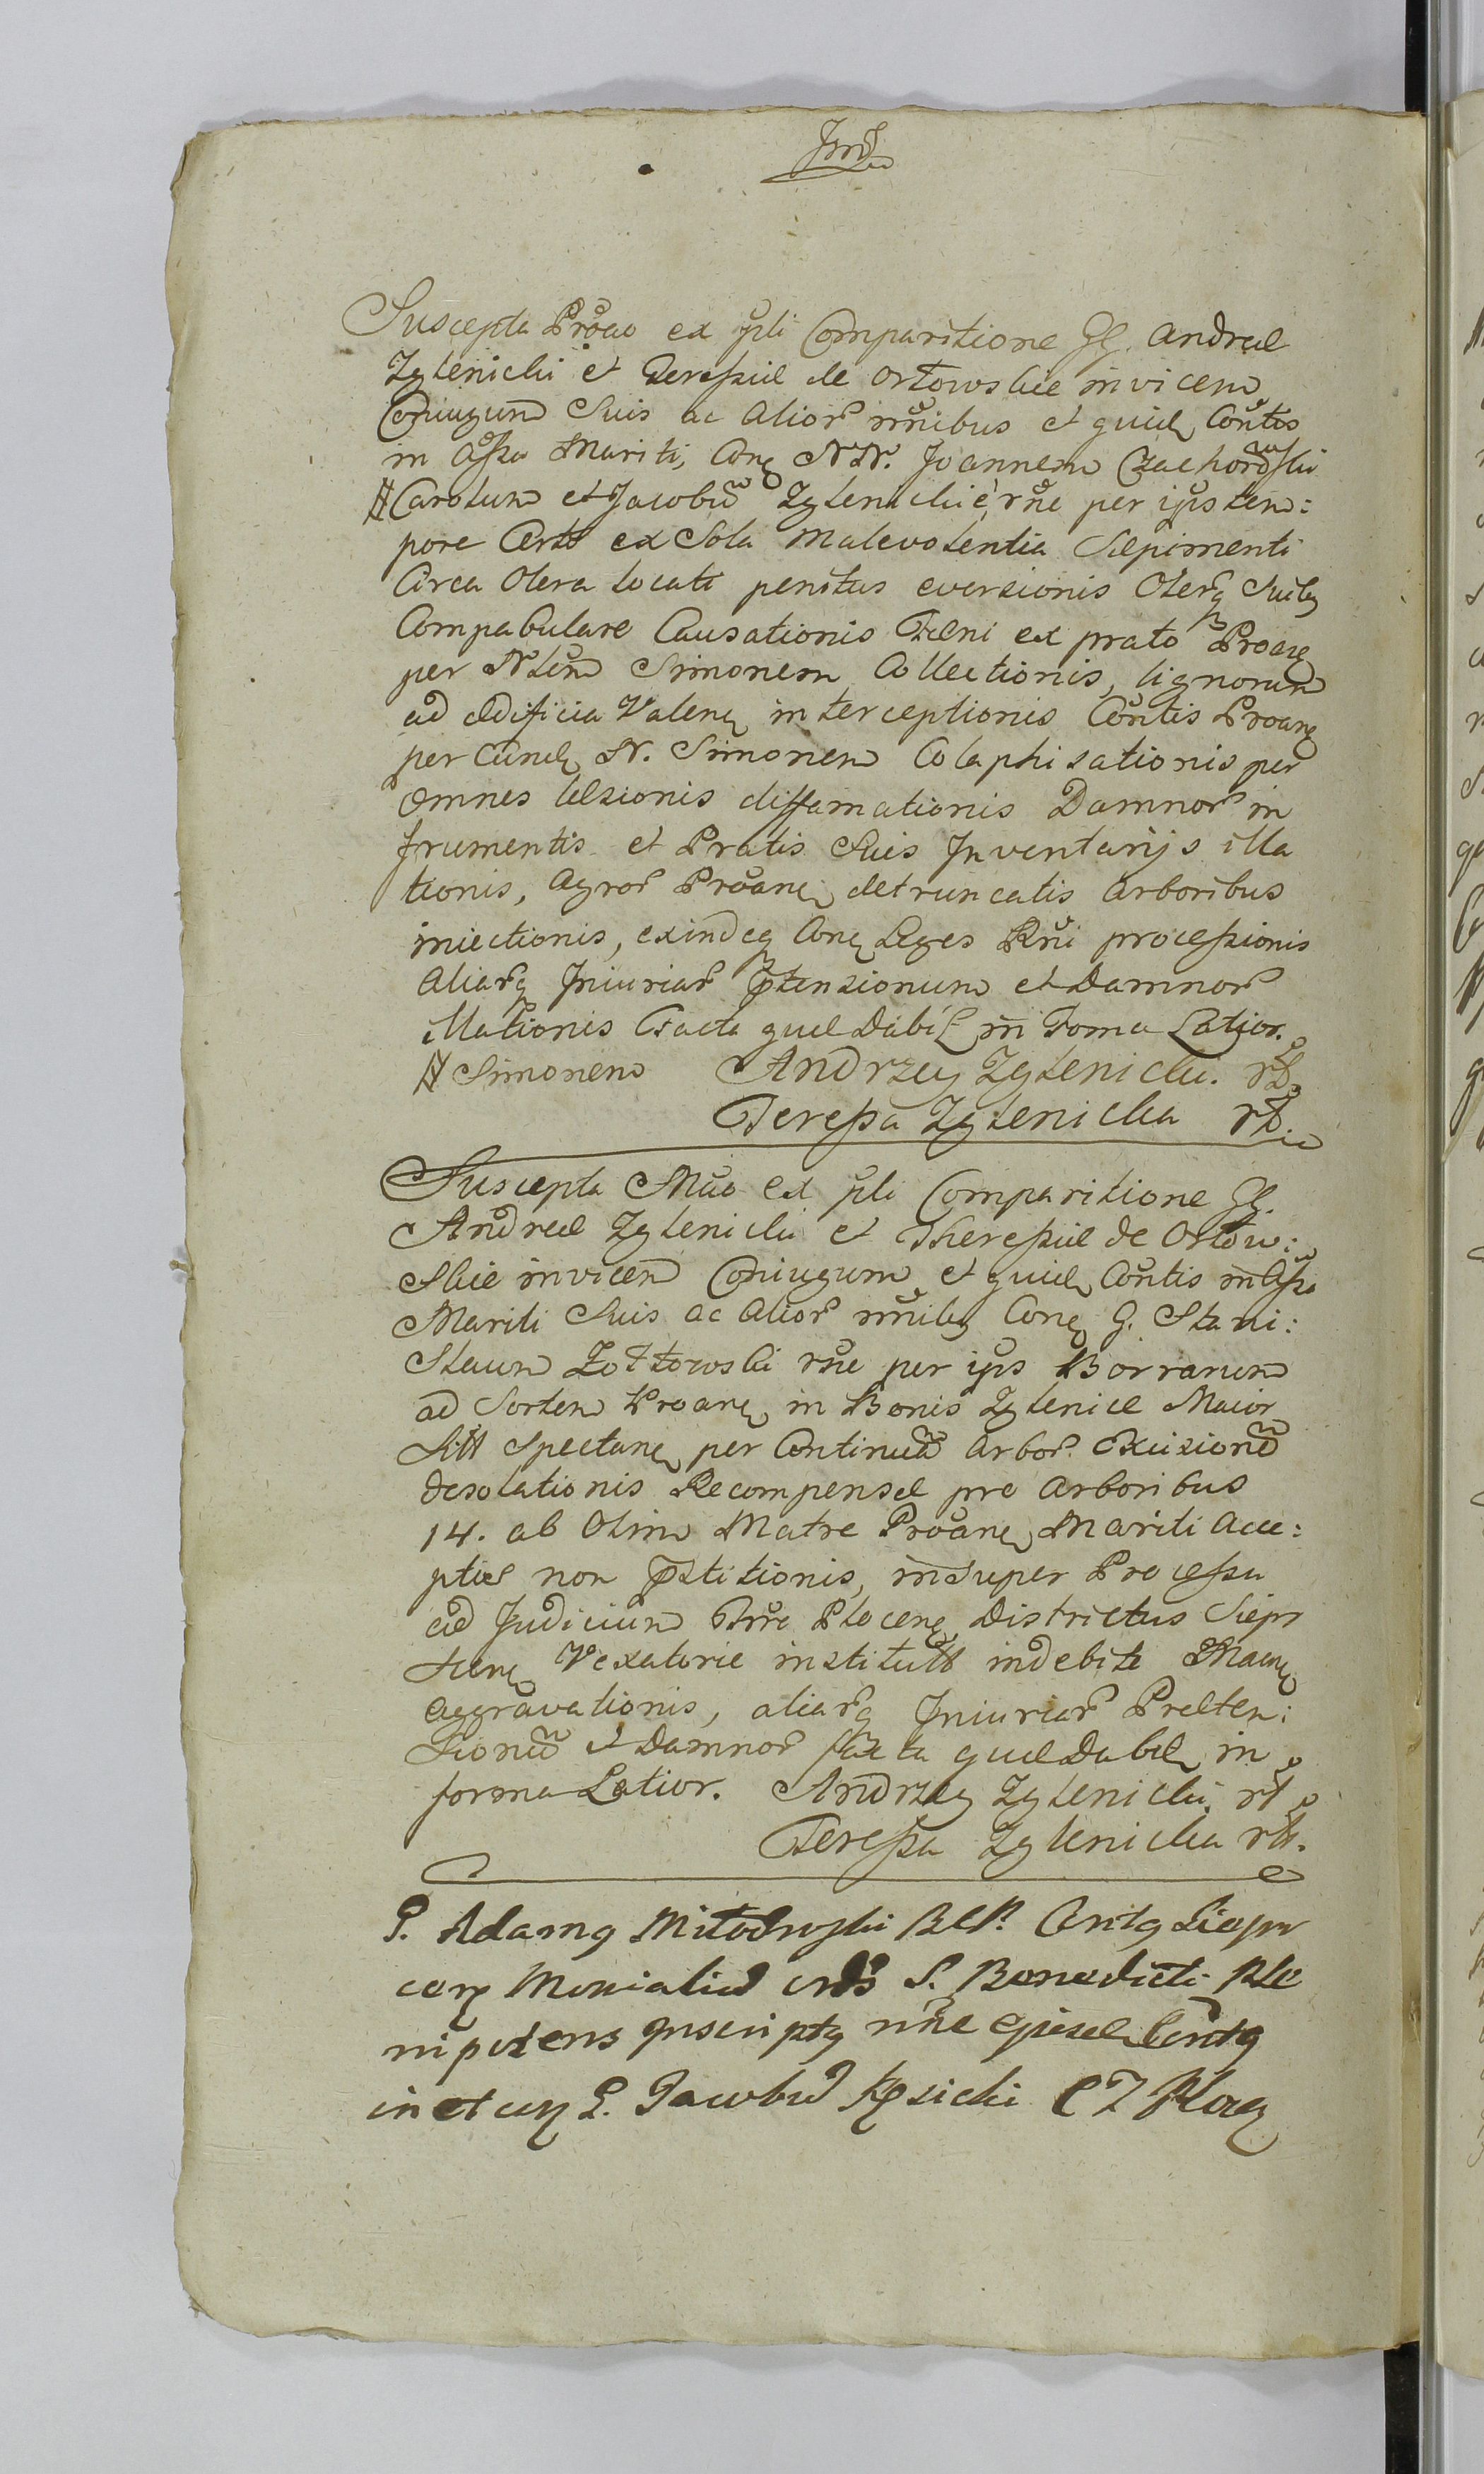 Suscepta Proão ex psli Comparitione GG. Andreæ
Zglenicki et Teressiæ de Orłowskie invicem
Coniugum Suis ac Alior nnibus et quidem Contis
in Assa Mariti, Con NN. Joannem Czachorowski
# Carolum et Jacobũ Zglenickie rñe per ipsos tem:
pore Certo ex Sola malevolentia Sæpimenti
Circa Olera locati penitus eversionis Olerq Suib
Compabulare Causationis Fæni ex prato Proan
per Nlem Simonem Collectionis, lignorum
ad ædificia Valen interceptionis Contis Proan
per eund N. Simonem Colaphisationis per
omnes læsionis diffamationis Damnor in
frumentis et Pratis Suis Inventarijs illa
tionis, Agror Proan detruncatis Arboribus
iniectionis, exindeq Con Leges Rni processionis
aliarq Iniuriar ptensionum et Damnor
illationis Facta quæ Dabil in Forma Latior.
# Simonem Andrzey Zglenicki. rk
Teressa Zglenicka rk.
Suscepta Mão ex psli Comparitione GG.
Andreæ Zglenicki et Theressiæ de Orłow:
Skie invicem Coniugum et quidem Contis in Assa
Mariti Suis ac Alior nnibus Con G. Stani:
Slaum Żółtowski rñe per ips Borrarum
ad Sortem Proan in Bonis Zglenice Maior
Sitt Spectan per Continuã Arbor Excisionẽ
desolationis Recompensæ pro Arboribus
14. ab Olim Matre Proan Mariti Acce:
ptis non pstitionis, insuper Processu
ad Judicium Trre Plocen Districtus Siepr
cien Vexatorie institutto indebite Man
Aggravationis, aliarq Iniuriar Præten:
Sionũ et Damnor facta quæ Dabil in
forma Latior. Andrzey Zglenicki. rk
Teressa Zglenicka rk.
G. Adamq Miłodroski Cntq Siepr
cen Monialiũ ords S. Benedicti Ple
nipotens Inscriptq nne Cntq
in et con G. Jacobũ Kęsicki C T Ploc